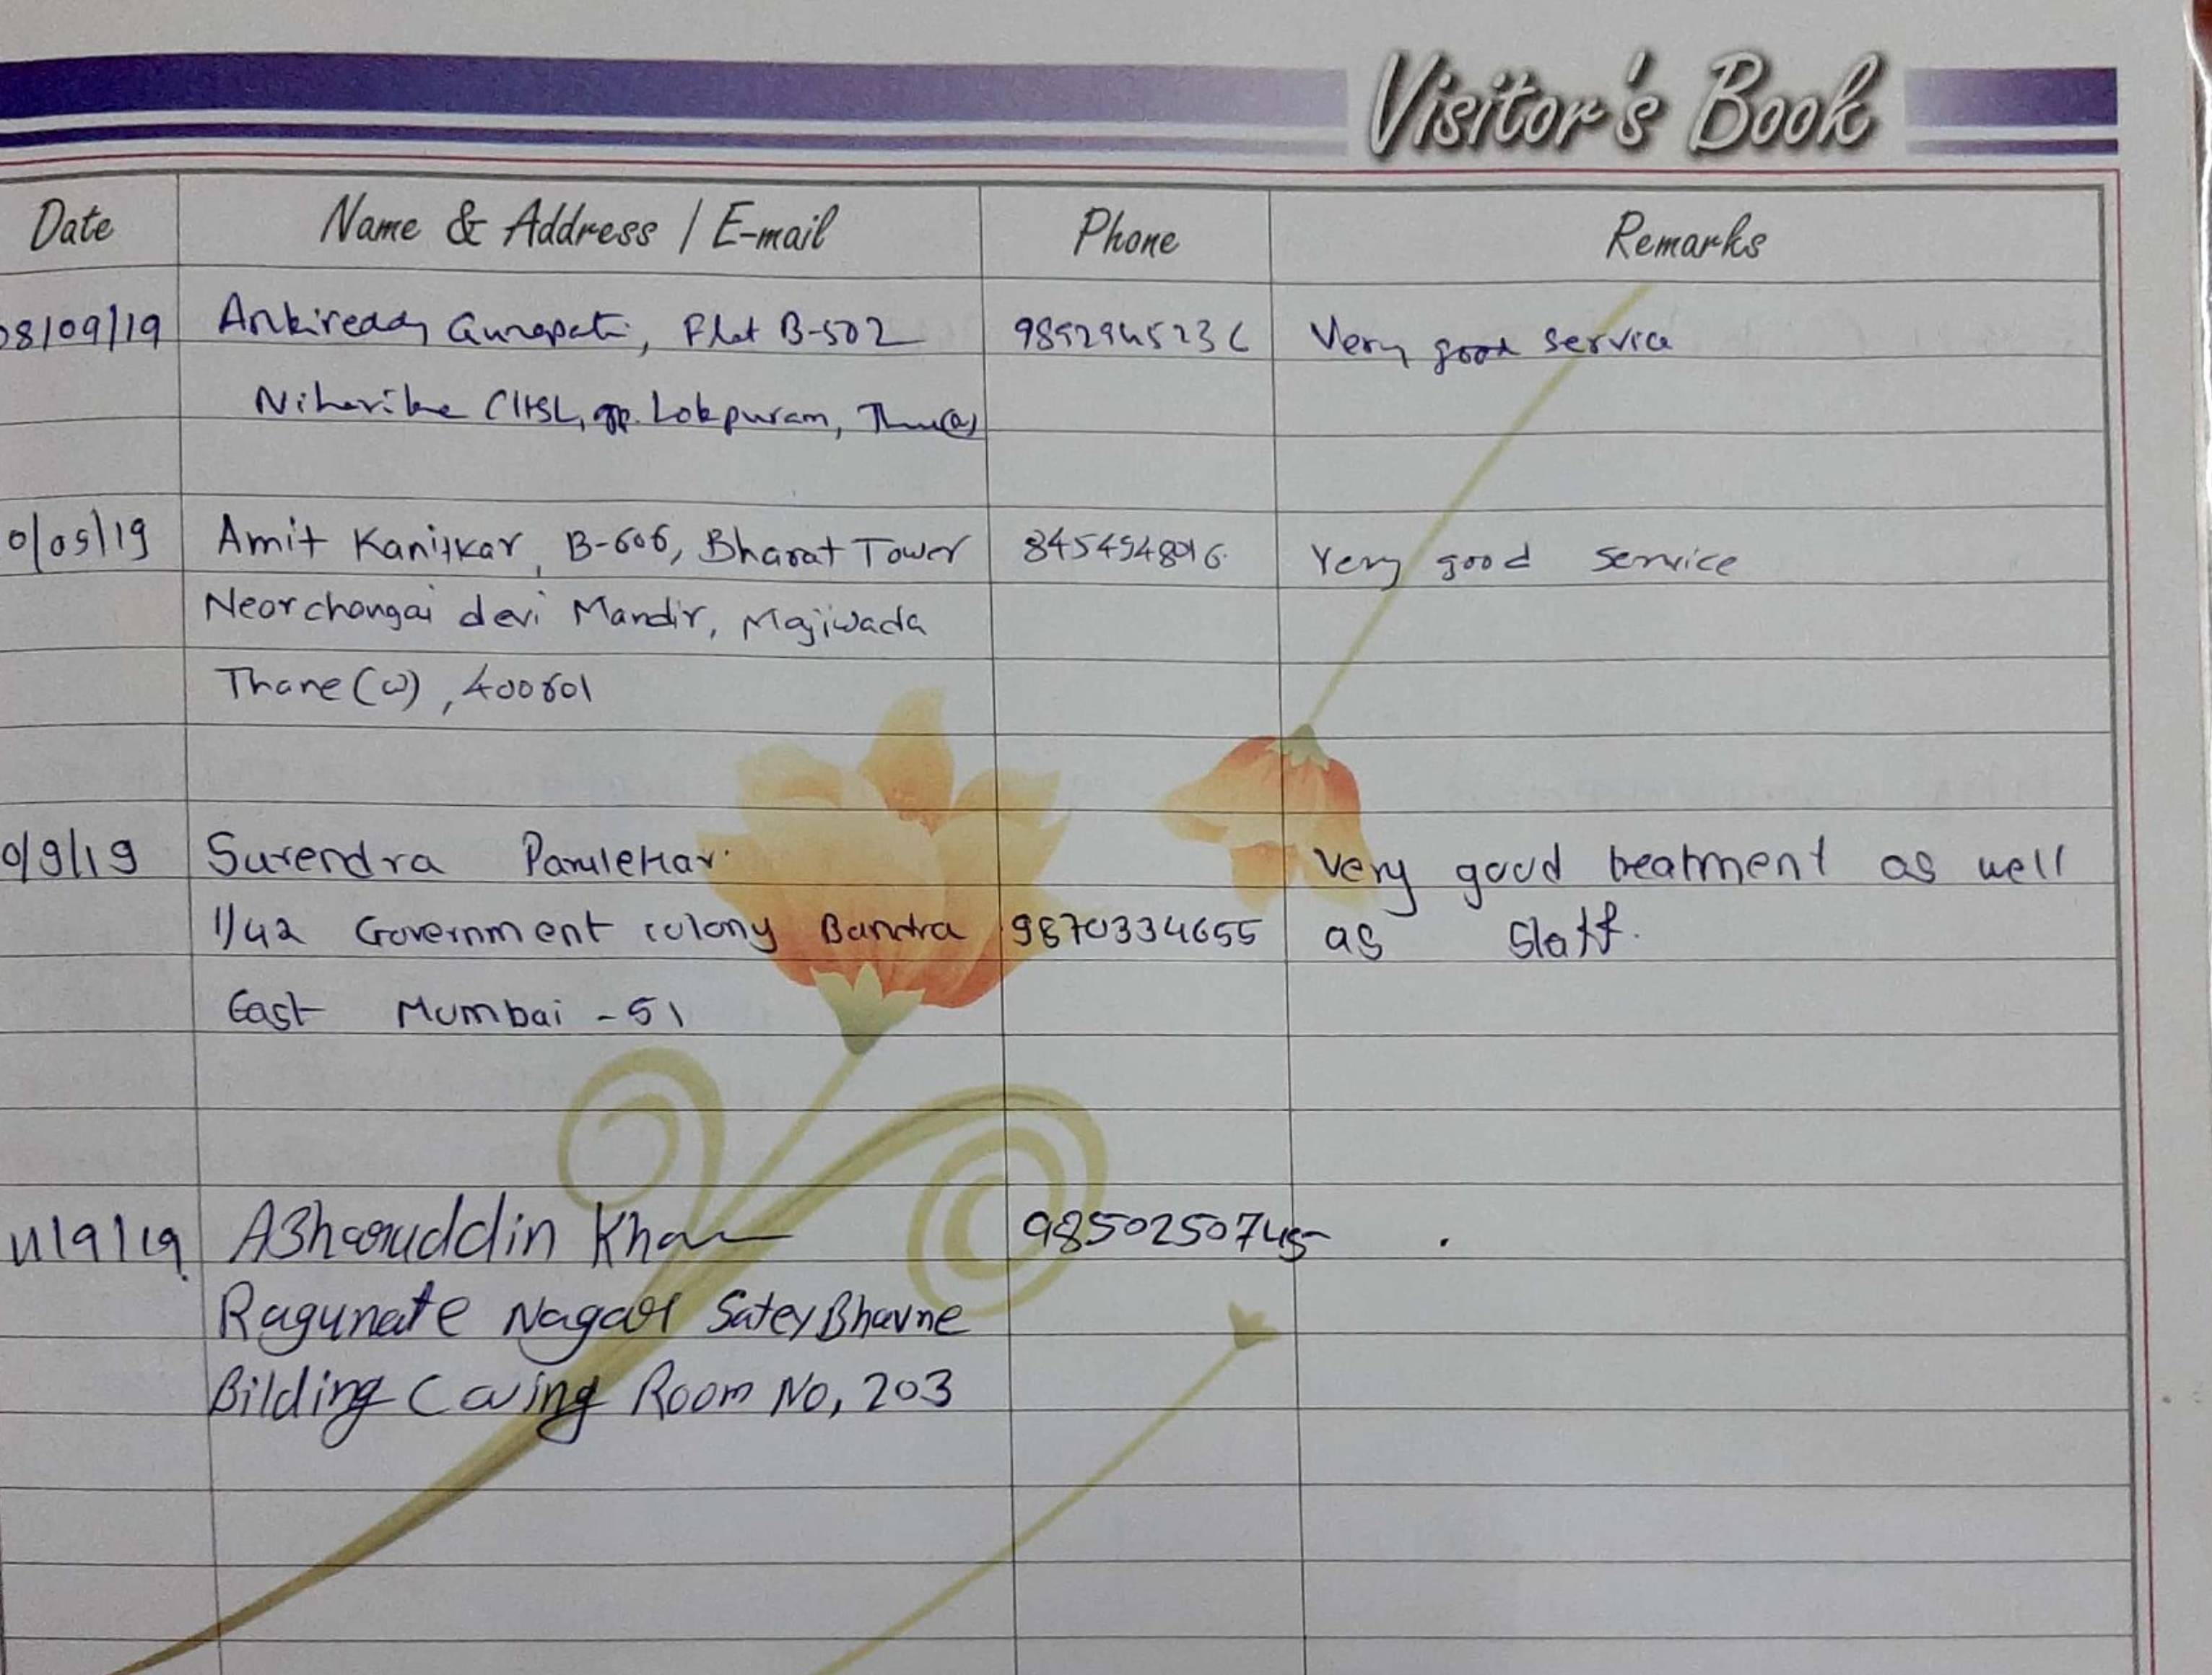 Visitor's Book
Date Name & Address / E-mail Phone Remarks
08/09/19 Ankireddy Gunapati, Flat B-502 Very good service
Niharika CHSL, opp. Lokpuram,
0/09/19 Amit Kanitkar, B-606, Bharat Tower Very good service
Near chongai devi Mandir, Majiwada
Thane (W), 400601
0/9/19 Surendra Parulekar Very good treatment as well
1/42 Government colony Bandra 9870334655 as Staff.
East Mumbai - 51
11/9/19 Azharuddin Khan 9850250745
Ragunate Nagar Satey Bhavne
Bilding Room No, 203